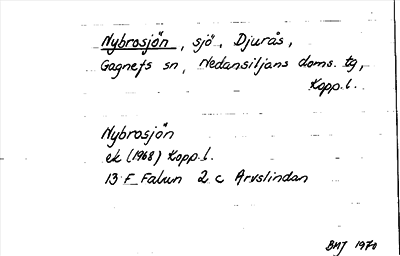 Nybrosjön, sjö, Djurås,
Gagnefs sn, Nedansiljans doms. tg,
Kopp.l.
Nybrosjön
ek (1968) Kopp.l.
13 F Falun 2 c Arvslindan
BMJ 1970